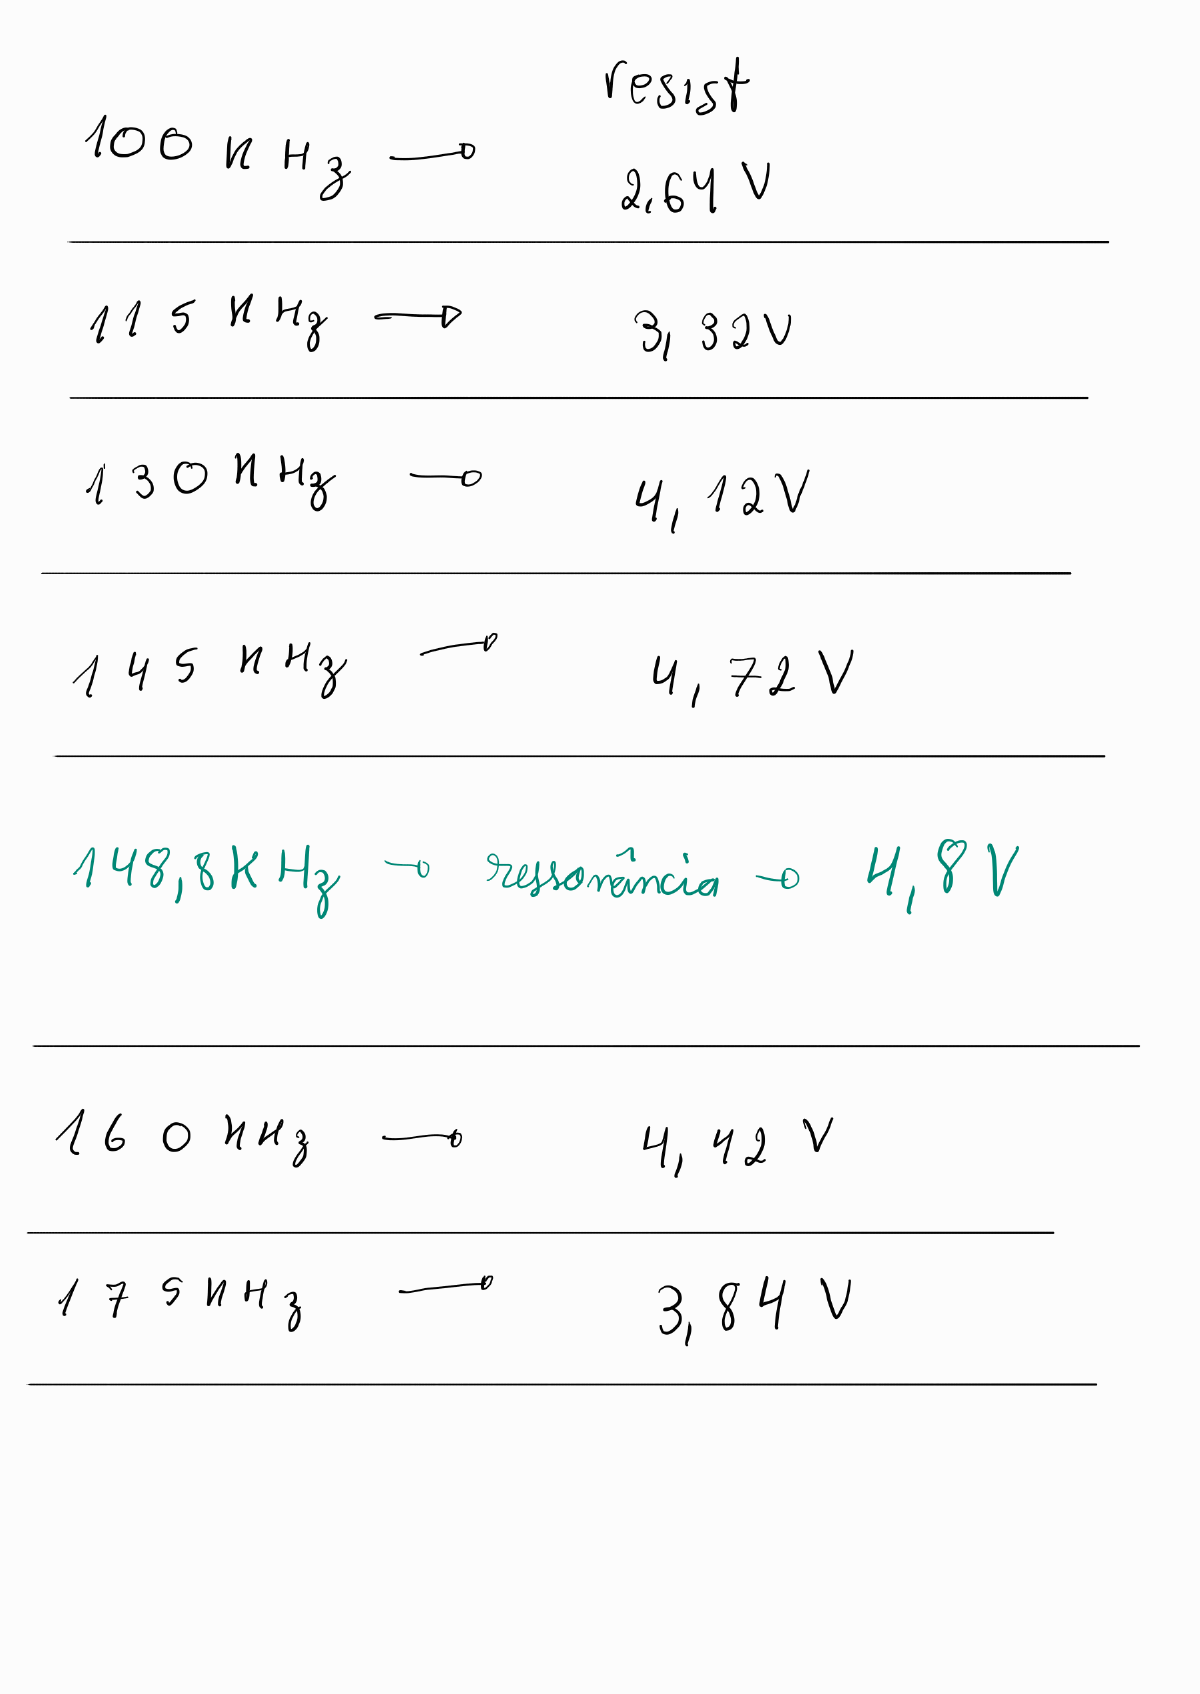 resist
100 KHz → 2,64 V
115 KHz → 3,32V
130 KHz → 4,12V
145 KHz → 4,72 V
148,8KHz → ressonância → 4,8 V
160 KHz → 4,42 V
175KHz → 3,84 V